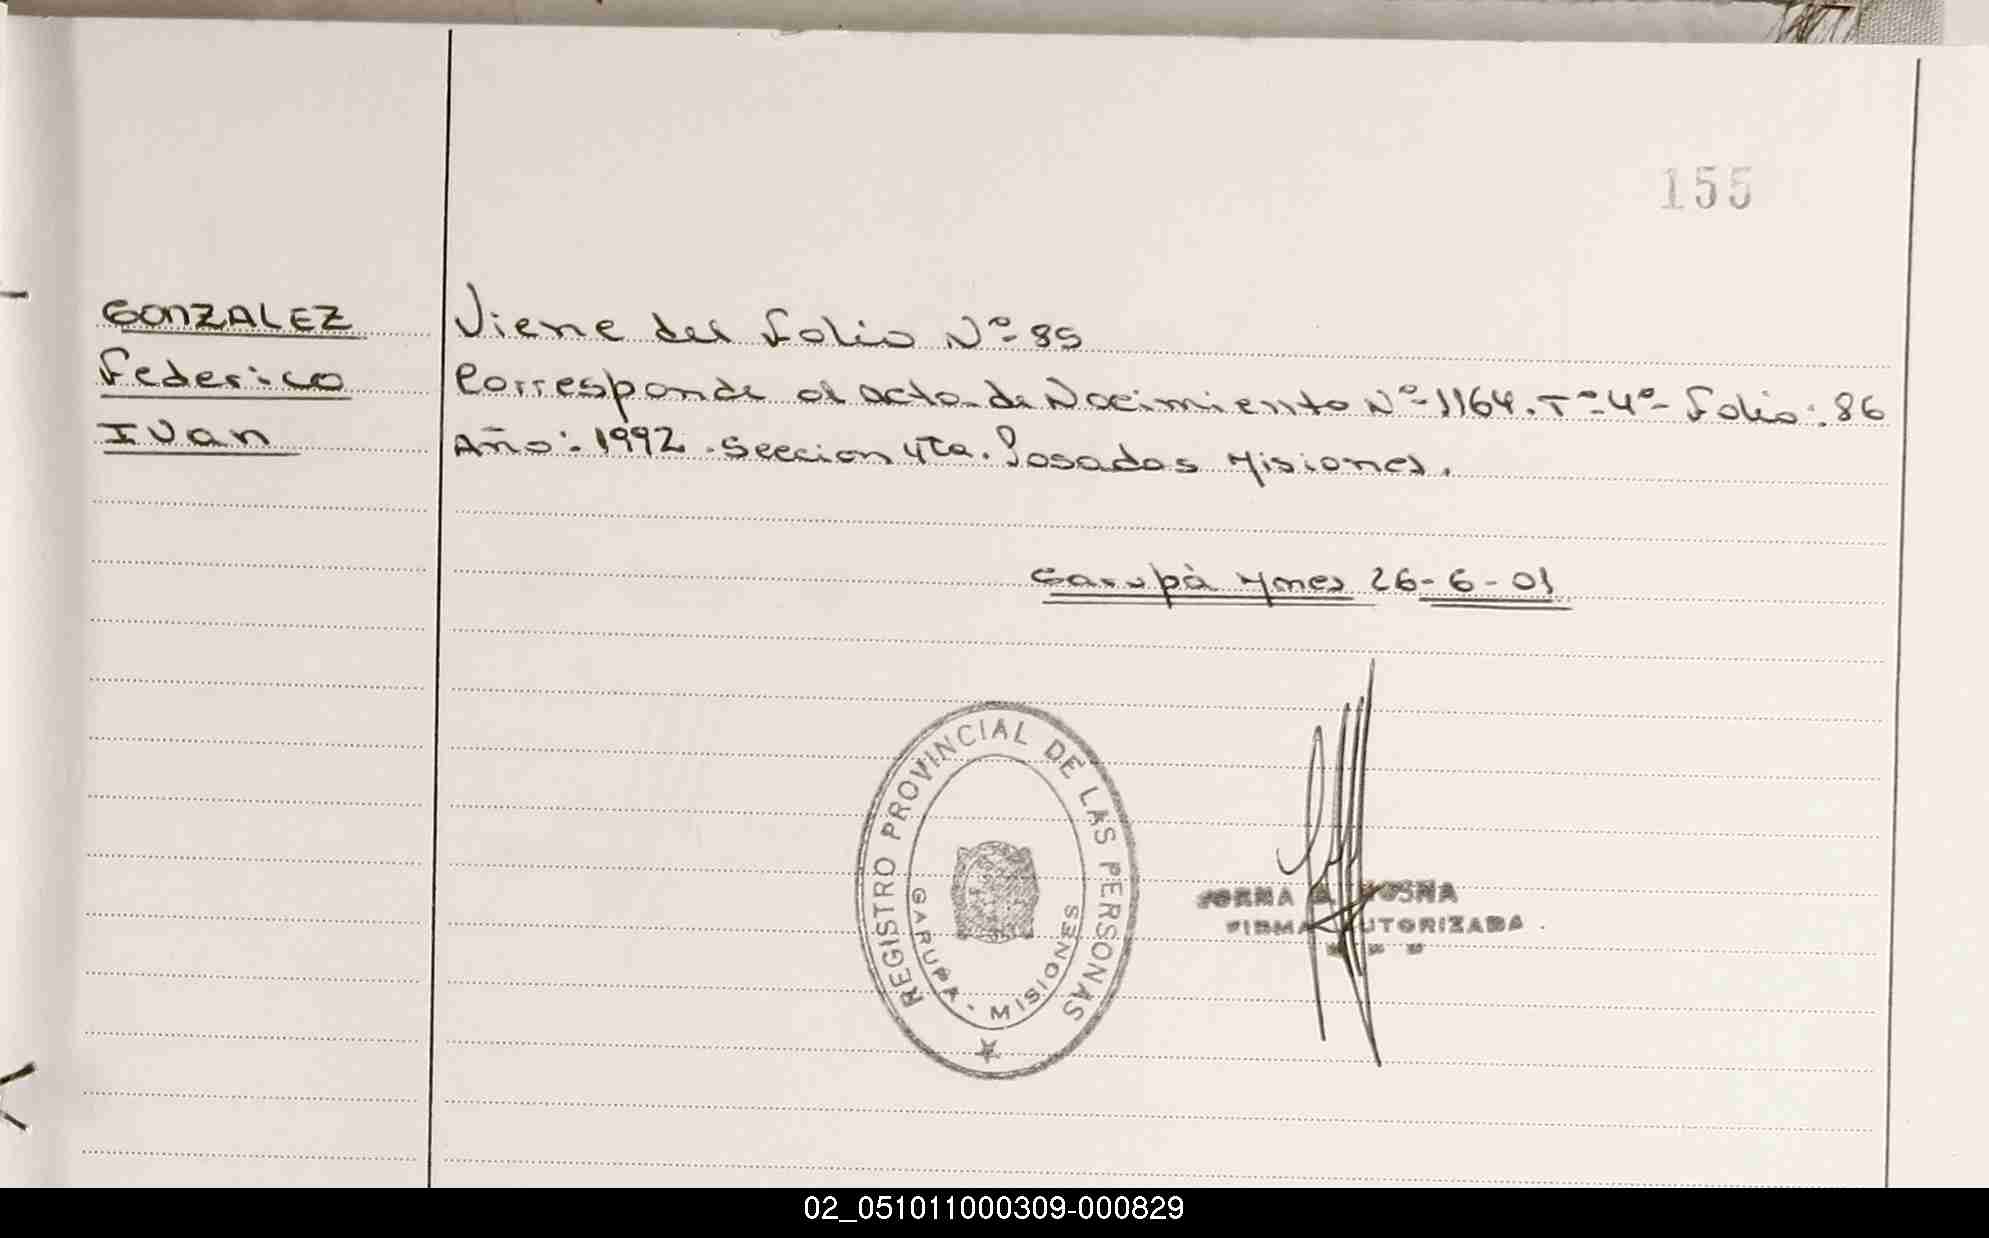 155
GONZALEZ
Federico
Ivan
Viene del folio Nº 85
Corresponde al acta de Nacimiento Nº 1164. Tº 4º - folio: 86
Año: 1992. Seccion 4ta. Posadas Misiones.
Garupà Mnes 26-6-01
REGISTRO PROVINCIAL DE LAS PERSONAS
GARUPA - MISIONES
FIRMA AUTORIZADA
02_051011000309-000829